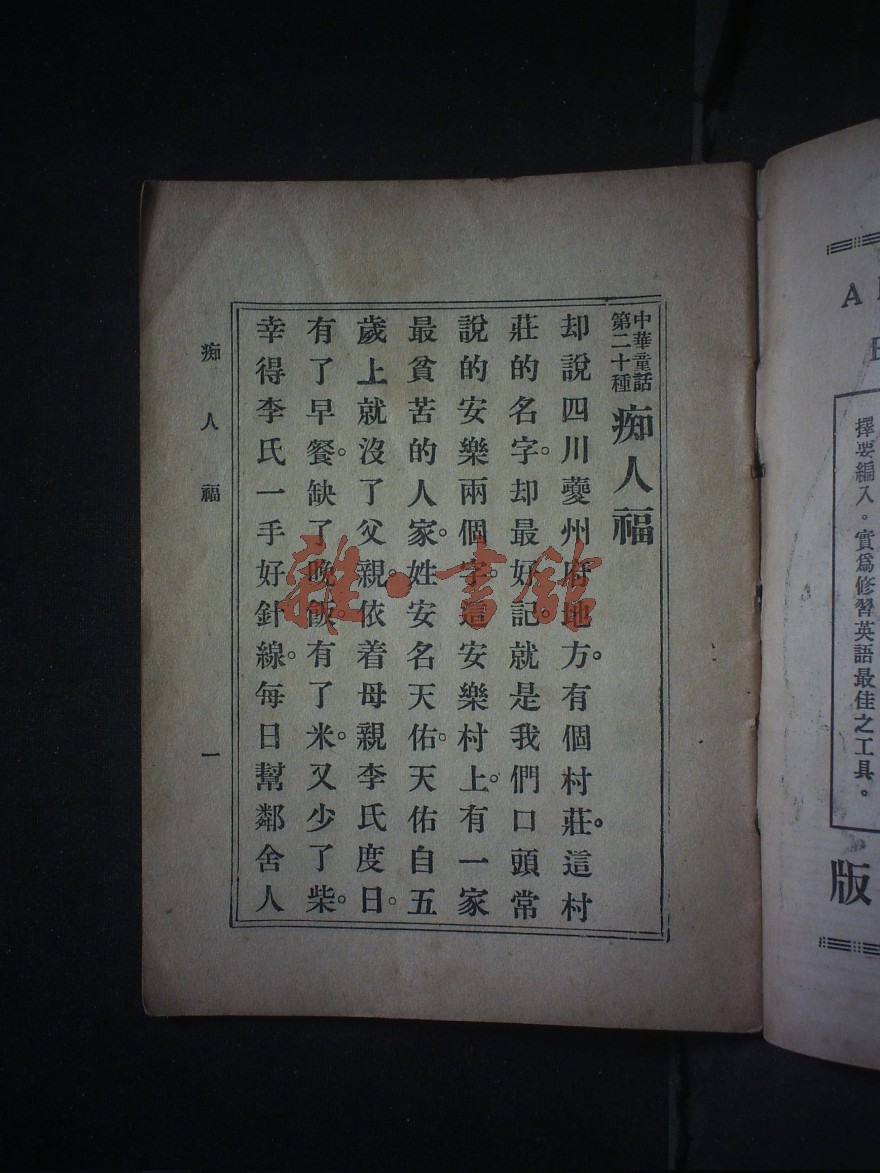 中華童話
第二十種
痴人福
却說四川夔州府地方。有個村莊。這村
莊的名字。却最好記。就是我們口頭常
說的安樂兩個字。這安樂村上。有一家
最貧苦的人家。姓安名天佑。天佑自五
歲上就沒了父親。依着母親李氏度日。
有了早餐。缺了晚飯。有了米。又少了柴。
幸得李氏一手好針線。每日幫鄰舍人
痴人福
一
雜·書館
擇要編入。實爲修習英語最佳之工具。
版